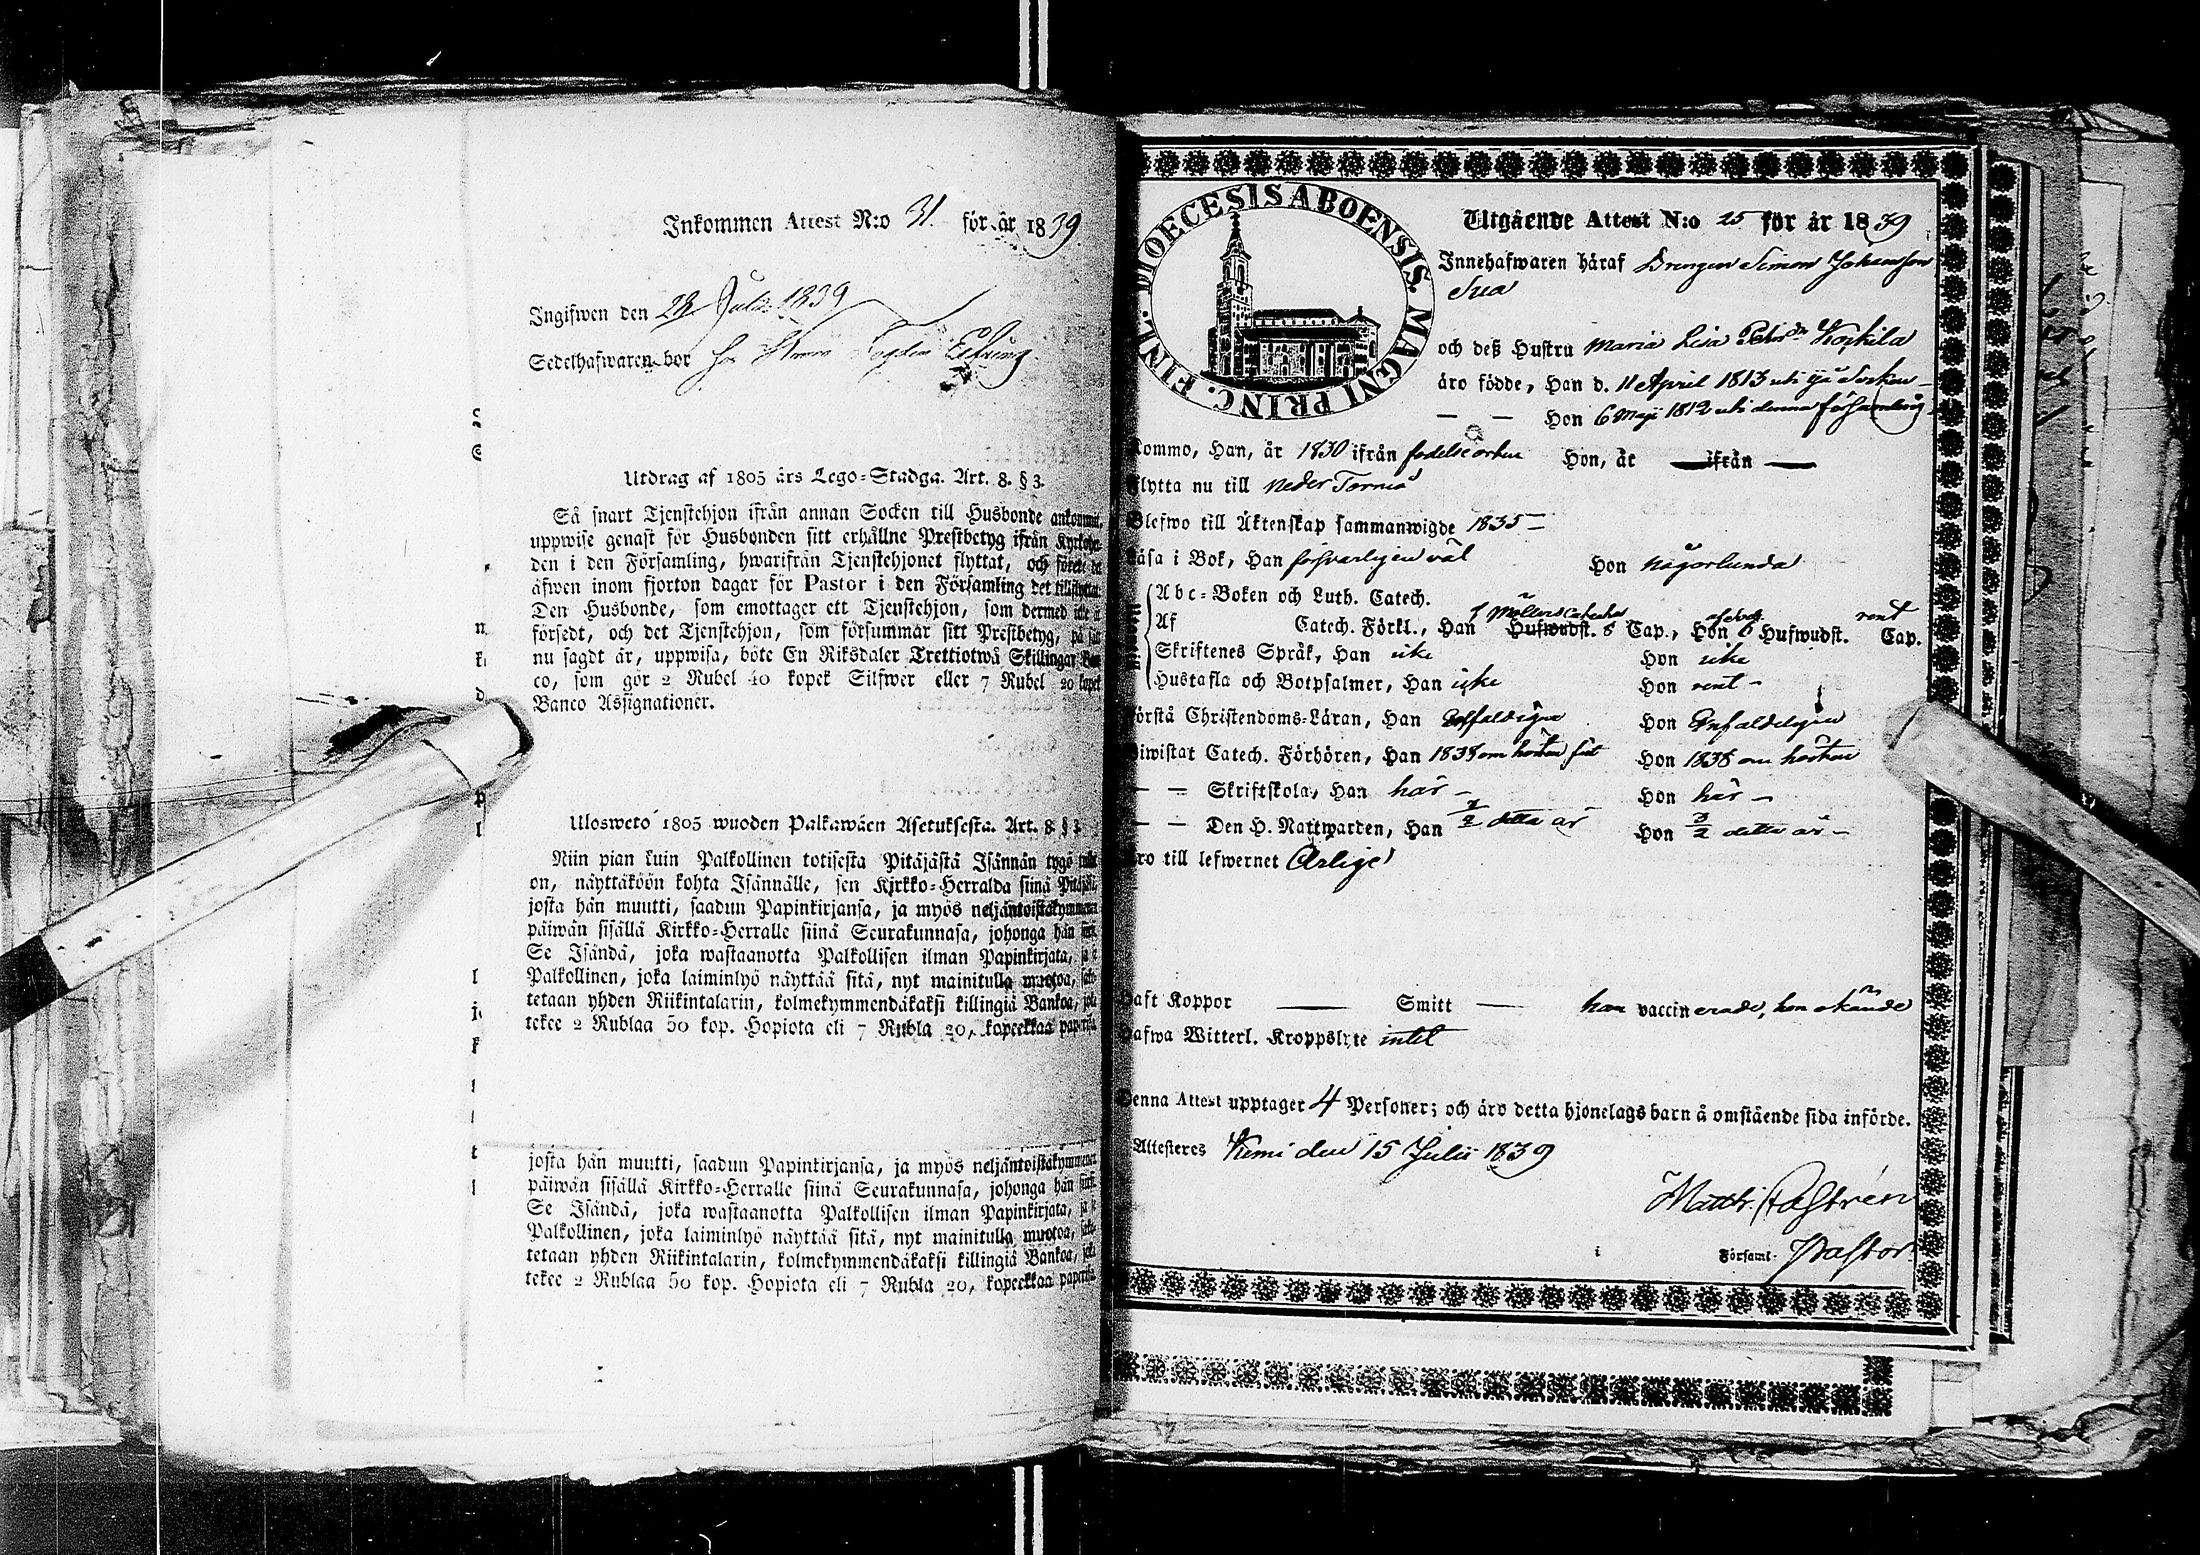 Inkommen Attest N:o 31. för år 1839.
Ingifwen den 28 Julii 1839
Sedelhafwaren bor
Utdrag af 1805 års Lego-Stadga. Art. 8. § 3.
Så snart Tjenstehjon ifrån annan Socken till Husbonde ankommit,
uppwise genast för Husbonden sitt erhållne Prestbetyg ifrån
den i den Församling, hwarifrån Tjenstehjonet flyttat, och
äfwen inom fjorton dagar för Pastor i den Församling det
Den Husbonde, som emottager ett Tjenstehjon, som dermed
försedt, och det Tjenstehjon, som försummar sitt Prestbetyg, på
nu sagdt är, uppwisa, böte En Riksdaler Trettiotwå Skillingar
co, som gör 2 Rubel 40 kopek Silfwer eller 7 Rubel 20 kopek
Banco Assignationer.
Uloswetö 1805 wuoden Palkawäen Asetuksesta. Art. 8. § 3.
Niin pian kuin Palkollinen totisesta Pitäjästä Isännän tygö
on, näyttäköön kohta Isännälle, sen Kirkko-Herralda siinä
josta hän muutti, saadun Papinkirjansa, ja myös neljäntoistakymmenen
päiwän sisällä Kirkko-Herralle siinä Seurakunnasa, johonga hän
Se Isändä, joka wastaanotta Palkollisen ilman Papinkirjata,
Palkollinen, joka laiminlyö näyttää sitä, nyt mainitulla muotoa,
tetaan yhden Riikintalarin, kolmekymmendäkaksi killingiä Bankoa,
tekee 2 Rublaa 50 kop. Hopiota eli 7 Rubla 20, kopeekkaa
josta hän muutti, saadun Papinkirjansa, ja myös neljäntoistakymmenen
päiwän sisällä Kirkko-Herralle siinä Seurakunnasa, johonga hän
Se Isändä, joka wastaanotta Palkollisen ilman Papinkirjata,
Palkollinen, joka laiminlyö näyttää sitä, nyt mainitulla muotoa,
tetaan yhden Riikintalarin, kolmekymmendäkaksi killingiä Bankoa,
tekee 2 Rublaa 50 kop. Hopiota eli 7 Rubla 20, kopeekkaa
DIOECESIS ABOENSIS. MAGNI PRINC. FINL.
Utgående Attest N:o 25 för år 1839
Innehafwaren häraf Drengen Simon Johansson
och deß Hustru Maria Lisa Petrsdr Koskila
äro födde, Han d. 11 April 1813 uti Socken
— — Hon 6 Maji 1812 uti denna församling
Kommo, Han, år 1830 ifrån Hon, år — ifrån —
flytta nu till Neder Torneå
Blefwo till Äktenskap sammanwigde 1835 —
Läsa i Bok, Han försvarligen väl Hon någorlunda
Abc-Boken och Luth. Catech.
Af Catech. Förkl., Han Hufwudst. Cap., Hon Hufwudst. rent Cap.
Skriftenes Språk, Han icke Hon icke
Hustafla och Botpsalmer, Han icke Hon rent —
Förstå Christendoms-Läran, Han Enfaldigen Hon Enfaldeligen
Biwistat Catech. Förhören, Han 1838 om hösten Hon 1838 om hösten
— — Skriftskola, Han här — Hon här —
— — Den H. Nattwarden, Han detta år Hon 3/2 detta år —
Äro till lefwernet Ärlige
Haft Koppor — Smitt — han vaccinerade, hon
Hafwa Witterl. Kroppslyte intet
Denna Attest upptager 4 Personer; och äro detta hjonelags barn å omstående sida införde.
Attesteres Kemi den 15 Julii 1839
Matth. Castrén
Församl. Pastor.